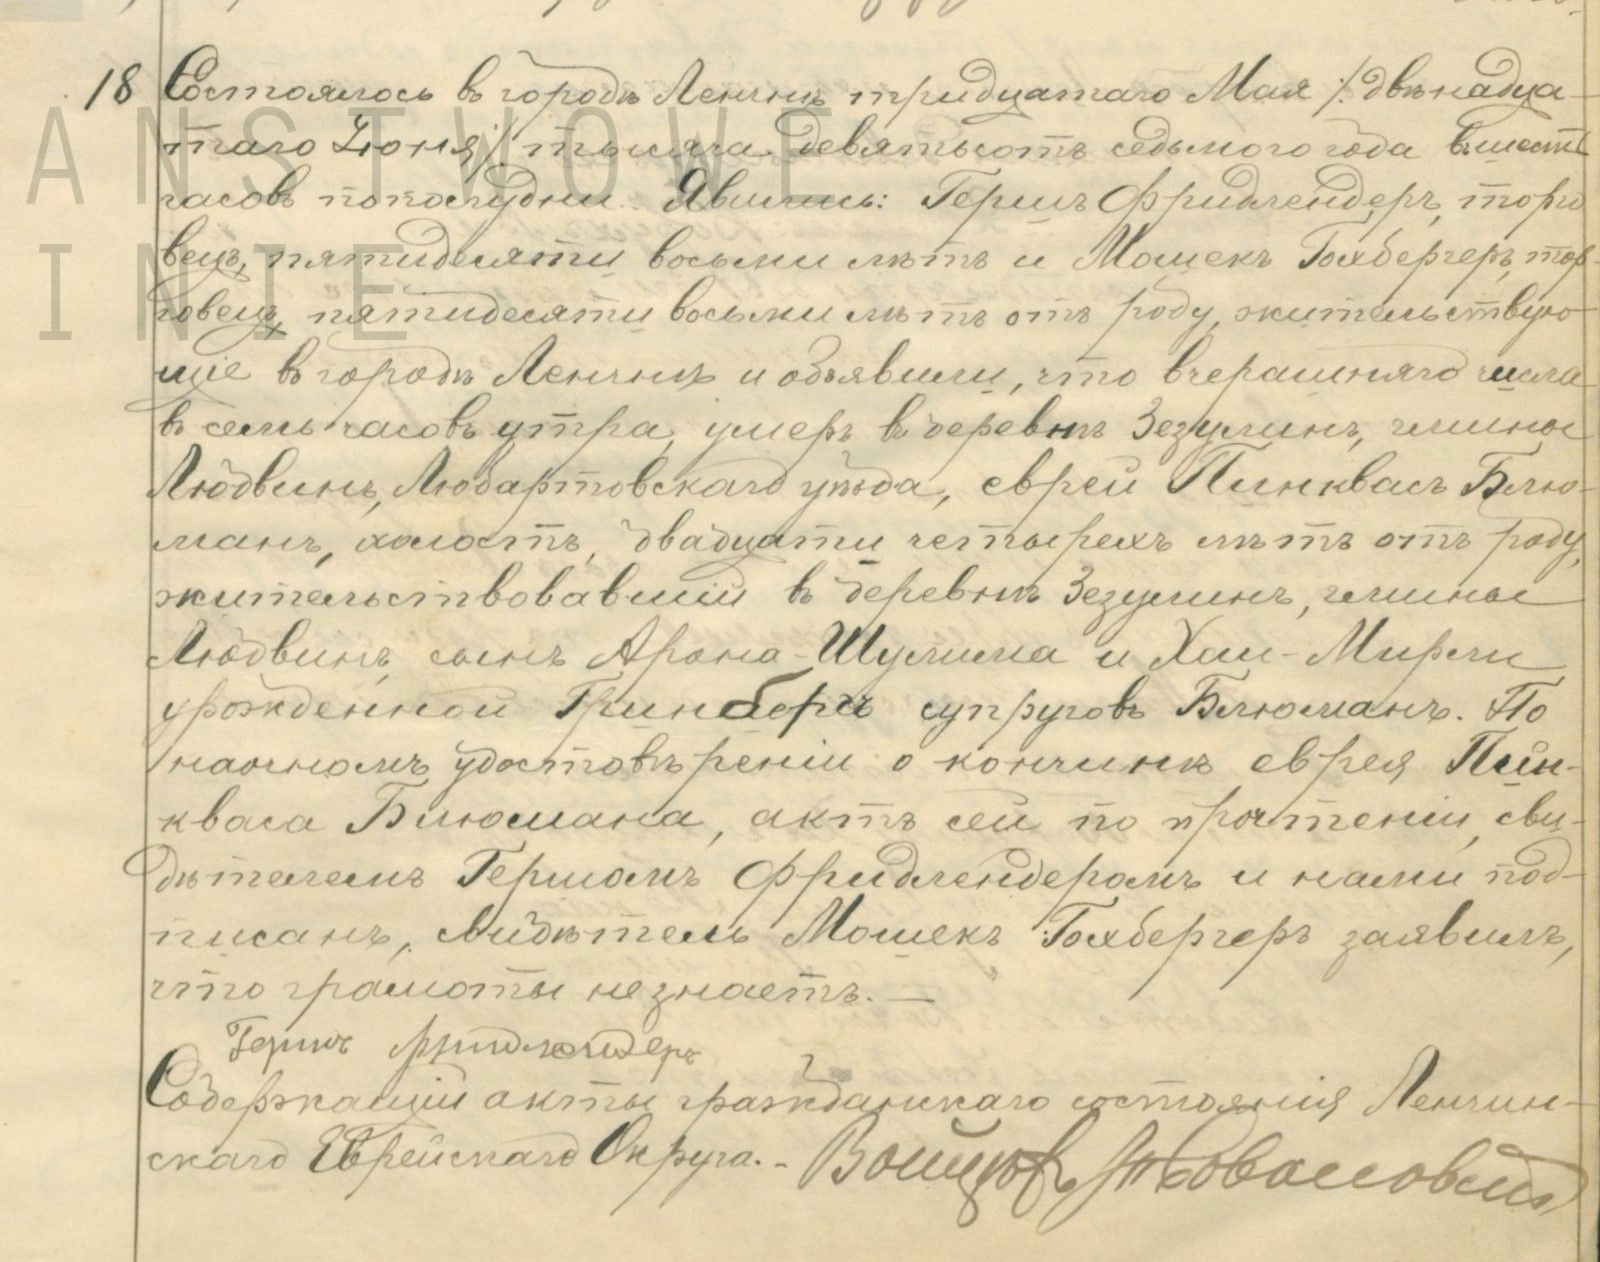 18 Состоялось въ городѣ Ленчнѣ тридцатаго Мая /: двѣнадца-
таго Іюня :/ тысяча девятьсотъ седьмого года въ шесть
часовъ пополудни. Явились: Гершъ Фридлендеръ, торго
вецъ, пятидесяти восьми лѣтъ и Мошекъ Гохбергеръ, тор-
говецъ, пятидесяти восьми лѣтъ отъ роду, жительствую-
щіе въ городѣ Ленчнѣ и объявили, что вчерашняго числа
въ семь часовъ утра, умеръ въ деревнѣ Зезулинъ, гмины
Людвинъ, Любартовскаго уѣзда, еврей Пинквасъ Блю-
манъ, холостъ, двадцати четырехъ лѣтъ отъ роду,
жительствовавшій въ деревнѣ Зезулинъ, гмины
Людвинъ, сынъ Арона-Шулима и Хаи-Мирли
урожденной Гринбергъ супруговъ Блюманъ. По
наочномъ удостовѣреніи о кончинѣ еврея Пин-
кваса Блюмана, актъ сей по прочтеніи, сви-
дѣтелемъ Гершомъ Фридлендеромъ и нами под-
писанъ, свидѣтель Мошекъ Гохбергеръ заявилъ,
что грамоты не знаетъ. —
Гершъ Фридлендеръ
Содержащій акты гражданскаго состоянія Ленчин-
скаго Еврейскаго Округа. -
ANSTWOWE
INIE